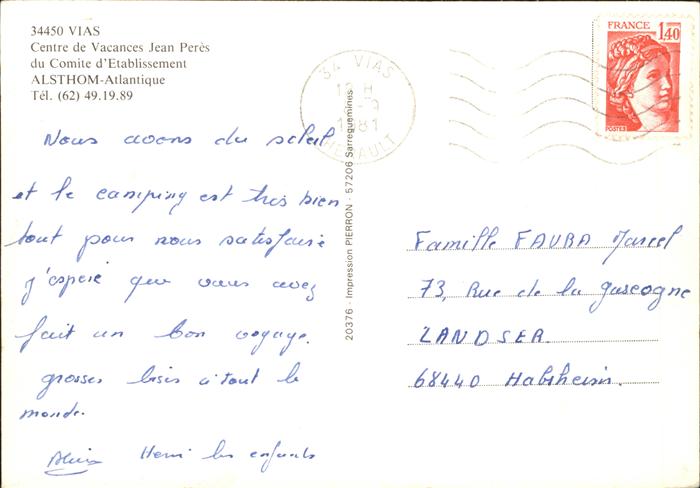 34450 VIAS
Centre de Vacances Jean Perès
du Comite d'Etablissement
ALSTHOM-Atlantique
Tél. (62) 49.19.89
Nous avons du soleil
et le camping est très bien
tout pour nous satisfaire
j'espere que vous avez
fait un bon voyage.
grosses bises a tout le
monde.
Henri les enfants
20376 - Impression PIERRON - 57206 Sarreguemines
34 VIAS
1981
HERAULT
FRANCE
1,40
POSTES
Famille FAUBA Marcel
73, Rue de la gascogne
LANDSER.
68440 Habsheim.